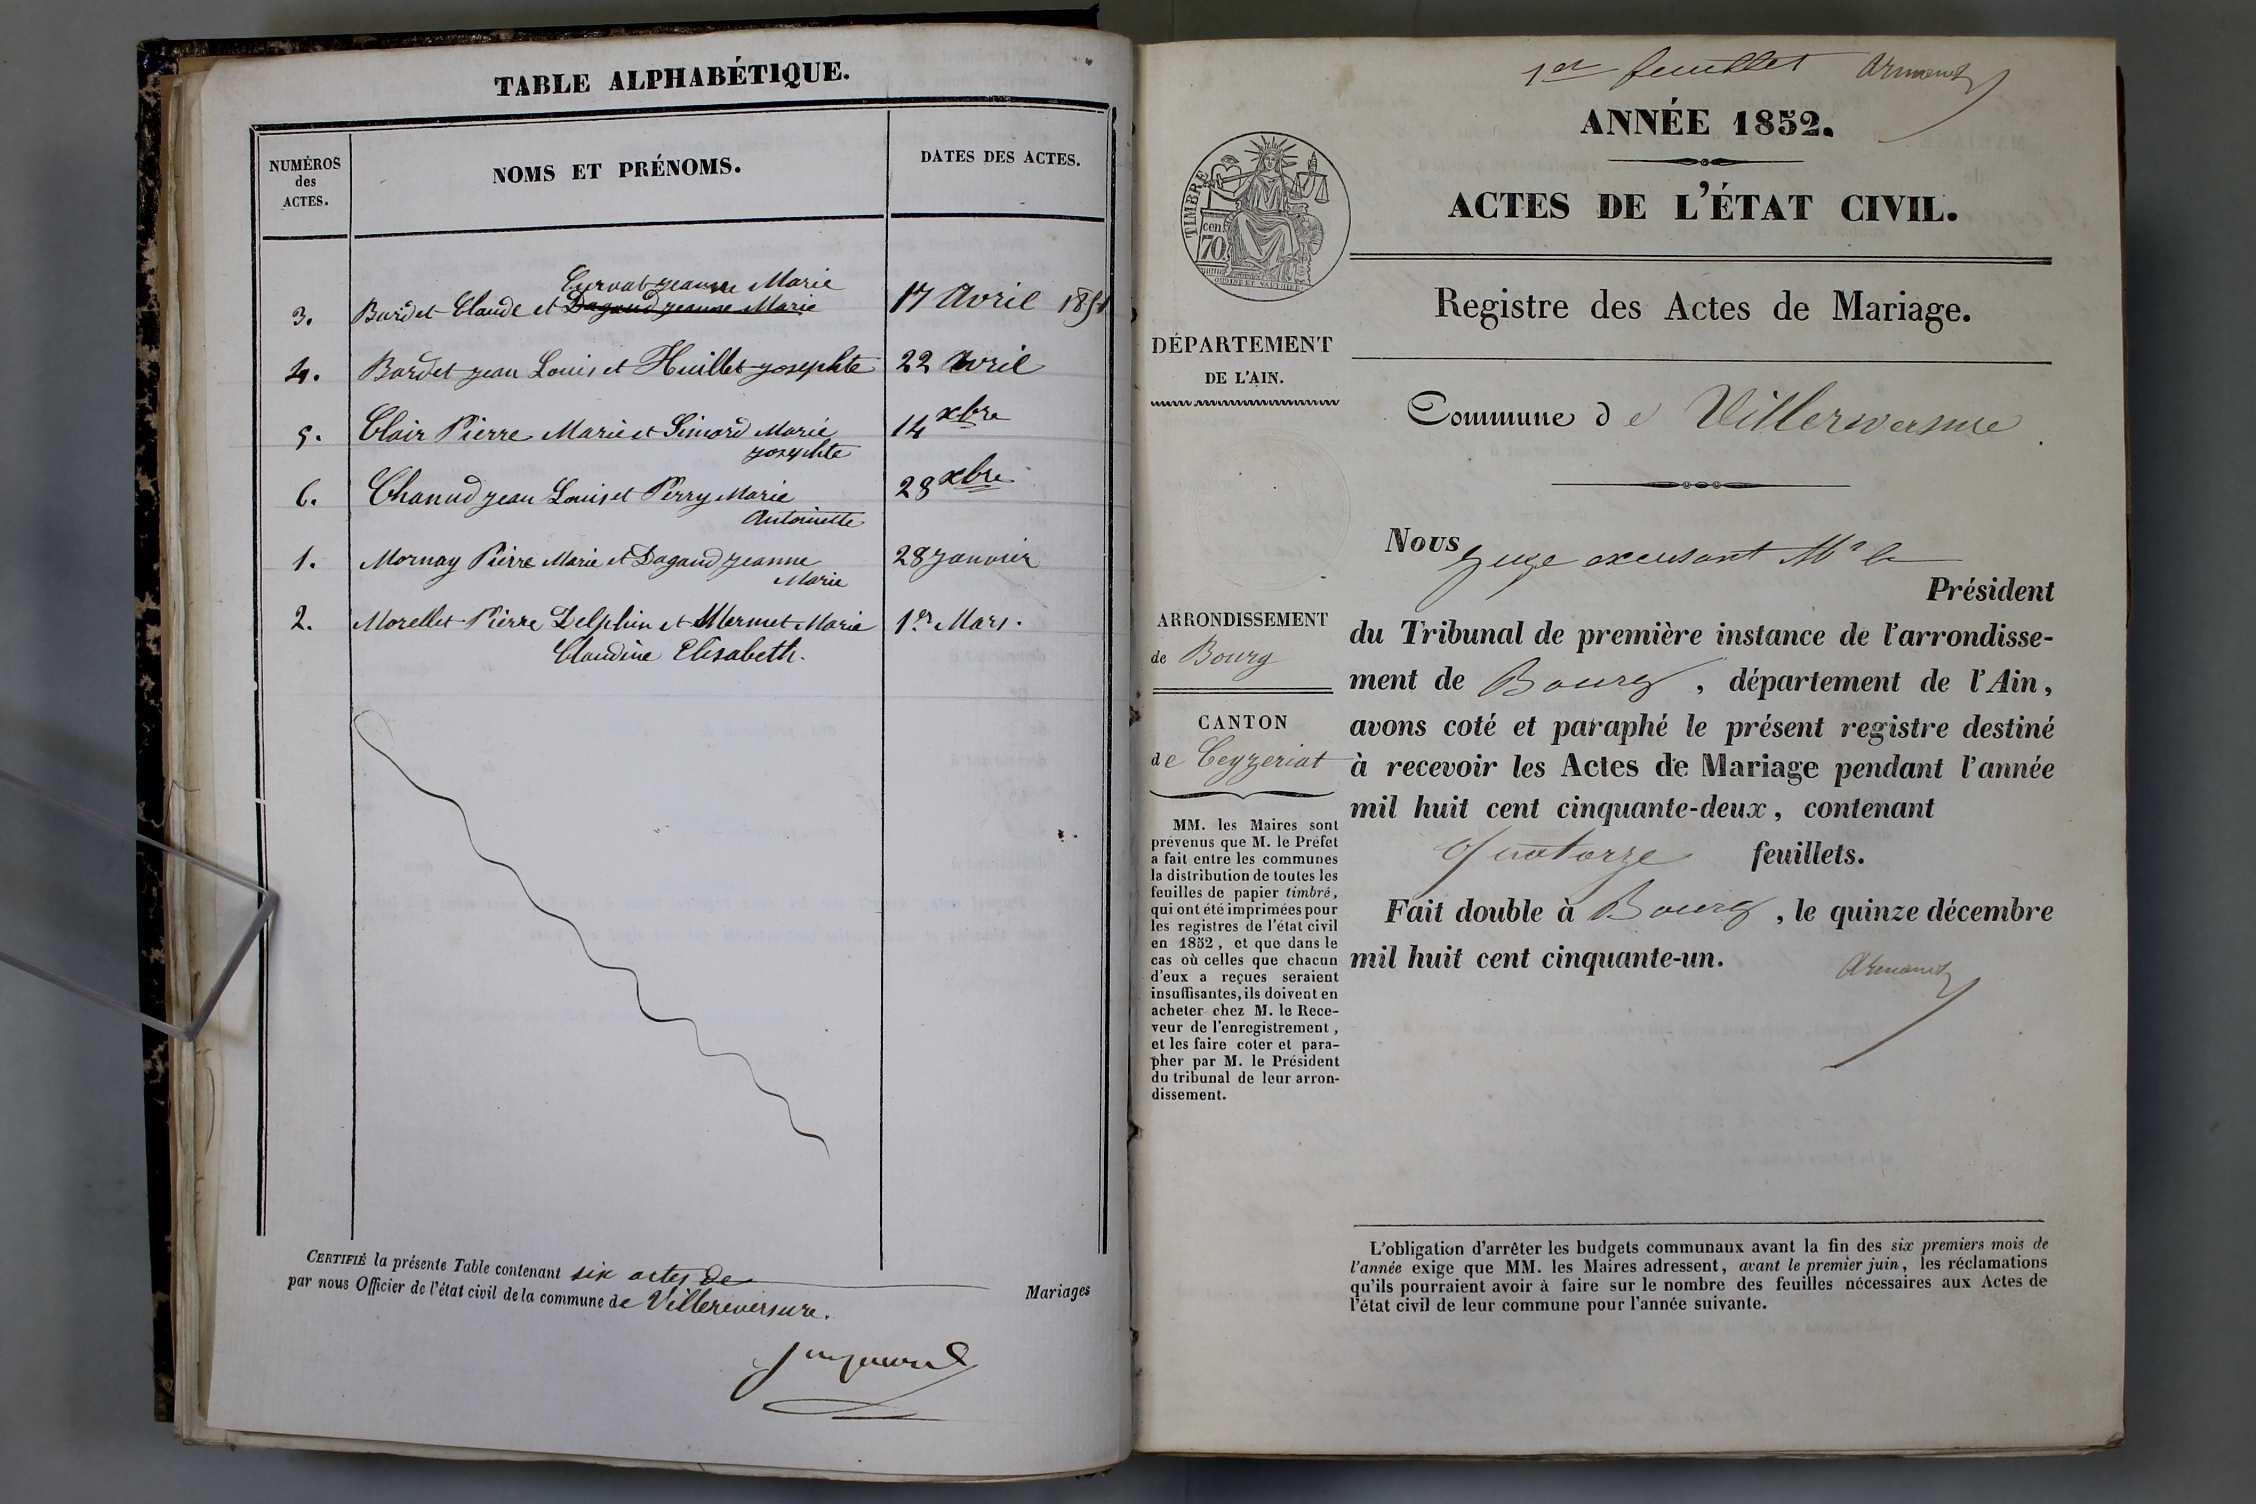 TABLE ALPHABÉTIQUE.
NUMÉROS
des
ACTES.
NOMS ET PRÉNOMS.
DATES DES ACTES.
Curvat Jeanne Marie
3. Bardet Claude et Dagaud Jeanne Marie 17 Avril 1851
4. Bardet Jean Louis et Huillet Josephte 22 Avril
5. Clair Pierre Marie et Simard Marie 14 xbre
Josephte
6. Chanud Jean Louis et Perry Marie 28 xbre
Antoinette
1. Mornay Pierre Marie et Dagaud Jeanne 28 Janvier
Marie
2. Morellet Pierre Delphin et Mermet Marie 1er Mars.
Claudine Elisabeth.
CERTIFIÉ la présente Table contenant six actes de Mariages
par nous Officier de l'état civil de la commune de Villereversure.
1er feuillet Armand
ANNÉE 1852.
TIMBRE
70 cen.
ACTES DE L'ÉTAT CIVIL.
Registre des Actes de Mariage.
DÉPARTEMENT
DE L'AIN.
Commune de Villereversure
ARRONDISSEMENT
de Bourg
CANTON
de Ceyzeriat
MM. les Maires sont
prévenus que M. le Préfet
a fait entre les communes
la distribution de toutes les
feuilles de papier timbré,
qui ont été imprimées pour
les registres de l'état civil
en 1852, et que dans le
cas où celles que chacun
d'eux a reçues seraient
insuffisantes, ils doivent en
acheter chez M. le Rece-
veur de l'enregistrement,
et les faire coter et para-
pher par M. le Président
du tribunal de leur arron-
dissement.
Nous Juge excusant Mr le
Président
du Tribunal de première instance de l'arrondisse-
ment de Bourg, département de l'Ain,
avons coté et paraphé le présent registre destiné
à recevoir les Actes de Mariage pendant l'année
mil huit cent cinquante-deux, contenant
Quatorze feuillets.
Fait double à Bourg, le quinze décembre
mil huit cent cinquante-un.
Armand
L'obligation d'arrêter les budgets communaux avant la fin des six premiers mois de
l'année exige que MM. les Maires adressent, avant le premier juin, les réclamations
qu'ils pourraient avoir à faire sur le nombre des feuilles nécessaires aux Actes de
l'état civil de leur commune pour l'année suivante.